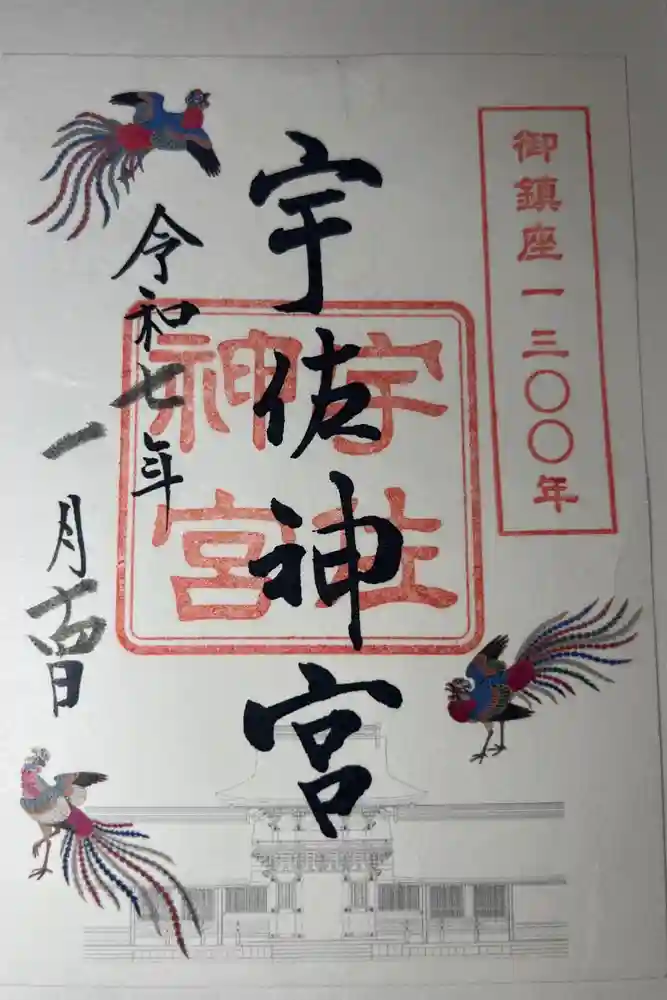 御鎮座一三〇〇年
宇佐神宮
宇佐
神宮
令和七年
一月 日